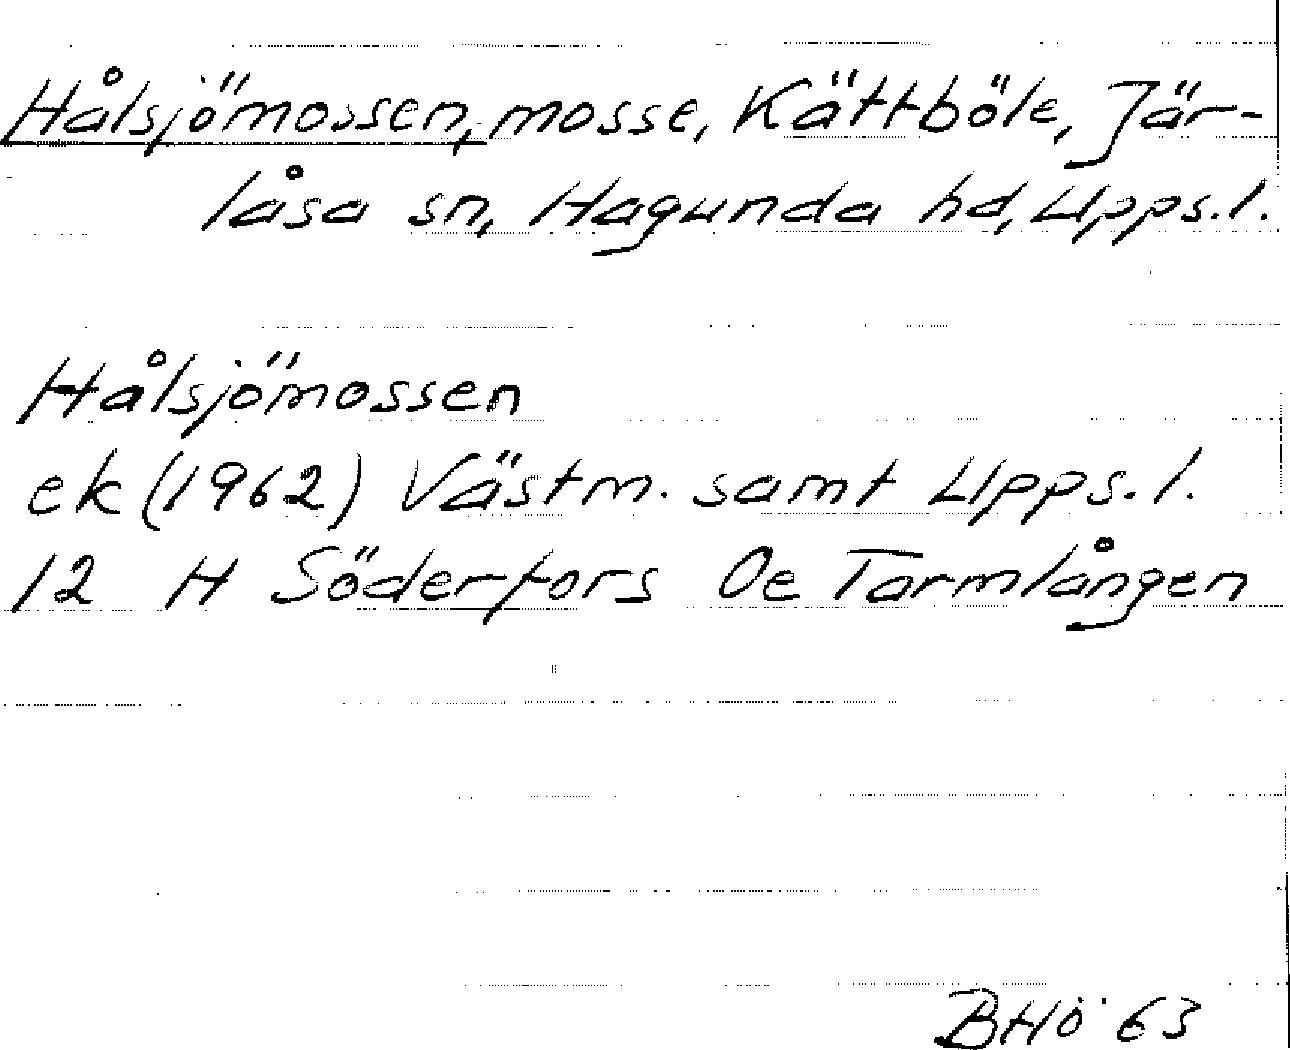 Hålsjömossen, mosse, Kättböle, Jär-
låsa sn, Hagunda hd, Upps. l.
Hålsjömossen
ek (1962) Västm. samt Upps. l.
12 H Söderfors Öe Tarmlången
BHö 63